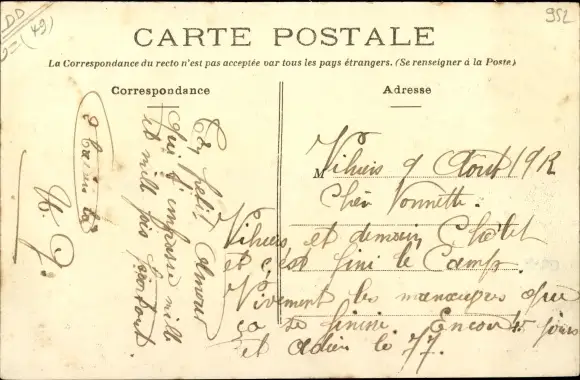 952
DD
(49)
CARTE POSTALE
La Correspondance du recto n'est pas acceptée par tous les pays étrangers. (Se renseigner à la Poste)
Correspondance
Adresse
M
Vihiers 9 Août 1912
Chér Vonnette.
Vihiers, et demain Chôlet
et c'est fini le Camp.
Vivement les manœuvres que
ça se finini. Encore 45 jours
et adieu le 77.
Ton petit Amour
qui t'embrasse mille
et mille fois partout.
à bientôt